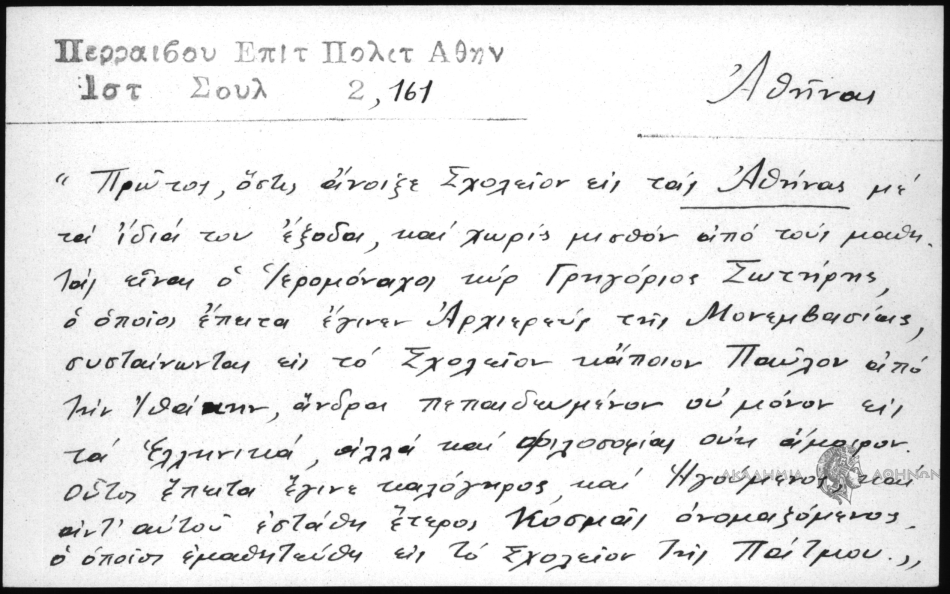 Περραιβου Επιτ Πολιτ Αθην
Ιστ Σουλ 2, 161
Ἀθήνας
“ Πρῶτος, ὅστις ἄνοιξε Σχολεῖον εἰς τάς Ἀθήνας μέ
τά ἴδιά του ἔξοδα, καί χωρίς μισθόν ἀπό τούς μαθη-
τάς εἶναι ὁ Ἱερομόναχος κύρ Γρηγόριος Σωτήρης,
ὁ ὁποῖος ἔπειτα ἔγινεν Ἀρχιερεύς τῆς Μονεμβασίας,
συσταίνωντας εἰς τό Σχολεῖον κάποιον Παῦλον ἀπό
τήν Ἰθάκην, ἄνδρα πεπαιδευμένον οὐ μόνον εἰς
τά Ἑλληνικά, ἀλλά καί φιλοσοφίας οὐκ ἄμοιρον.
Οὗτος ἔπειτα ἔγινε καλόγηρος, καί Ἡγούμενος καί
ἀντ' αὐτοῦ ἐστάθη ἕτερος Κοσμᾶς ὀνομαζόμενος,
ὁ ὁποῖος ἐμαθητεύθη εἰς τό Σχολεῖον τῆς Πάτμου.„
ΑΚΑΔΗΜΙΑ ΑΘΗΝΩΝ